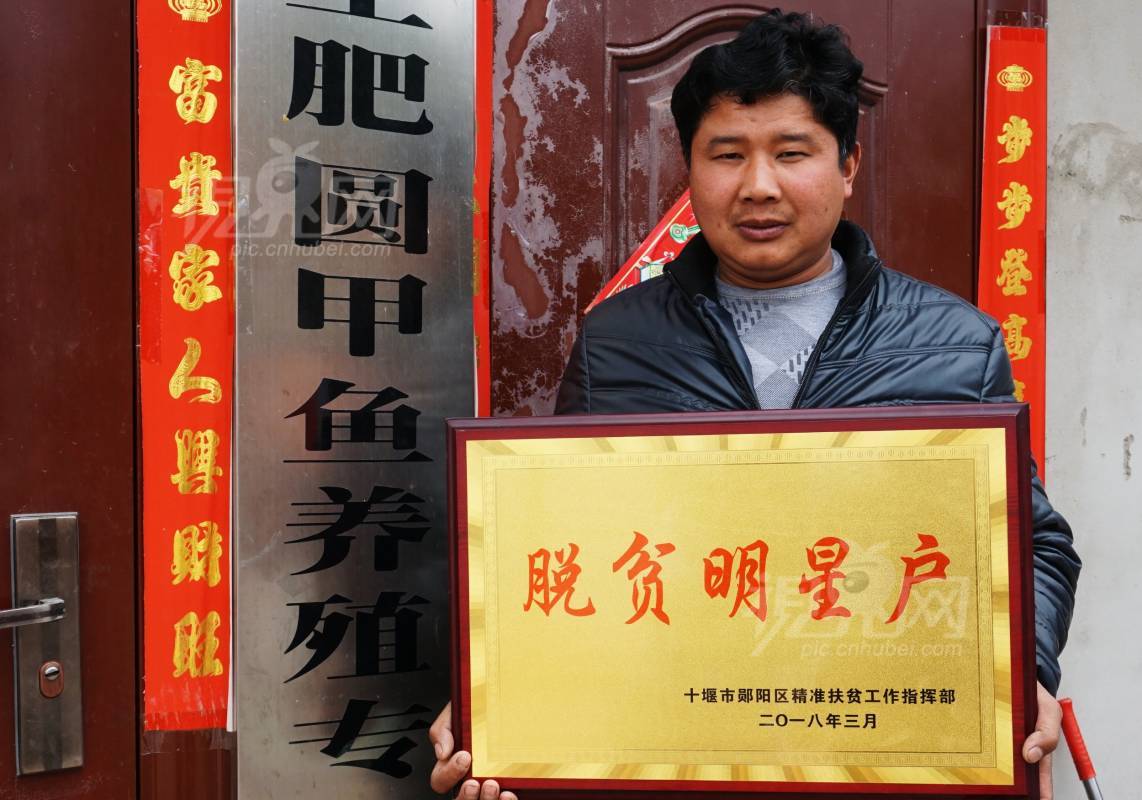 富貴家人興財旺
肥圆甲鱼养殖专
步步登高
脱贫明星户
十堰市郧阳区精准扶贫工作指挥部
二〇一八年三月
视界网
pic.cnhubei.com
视界网
pic.cnhubei.com